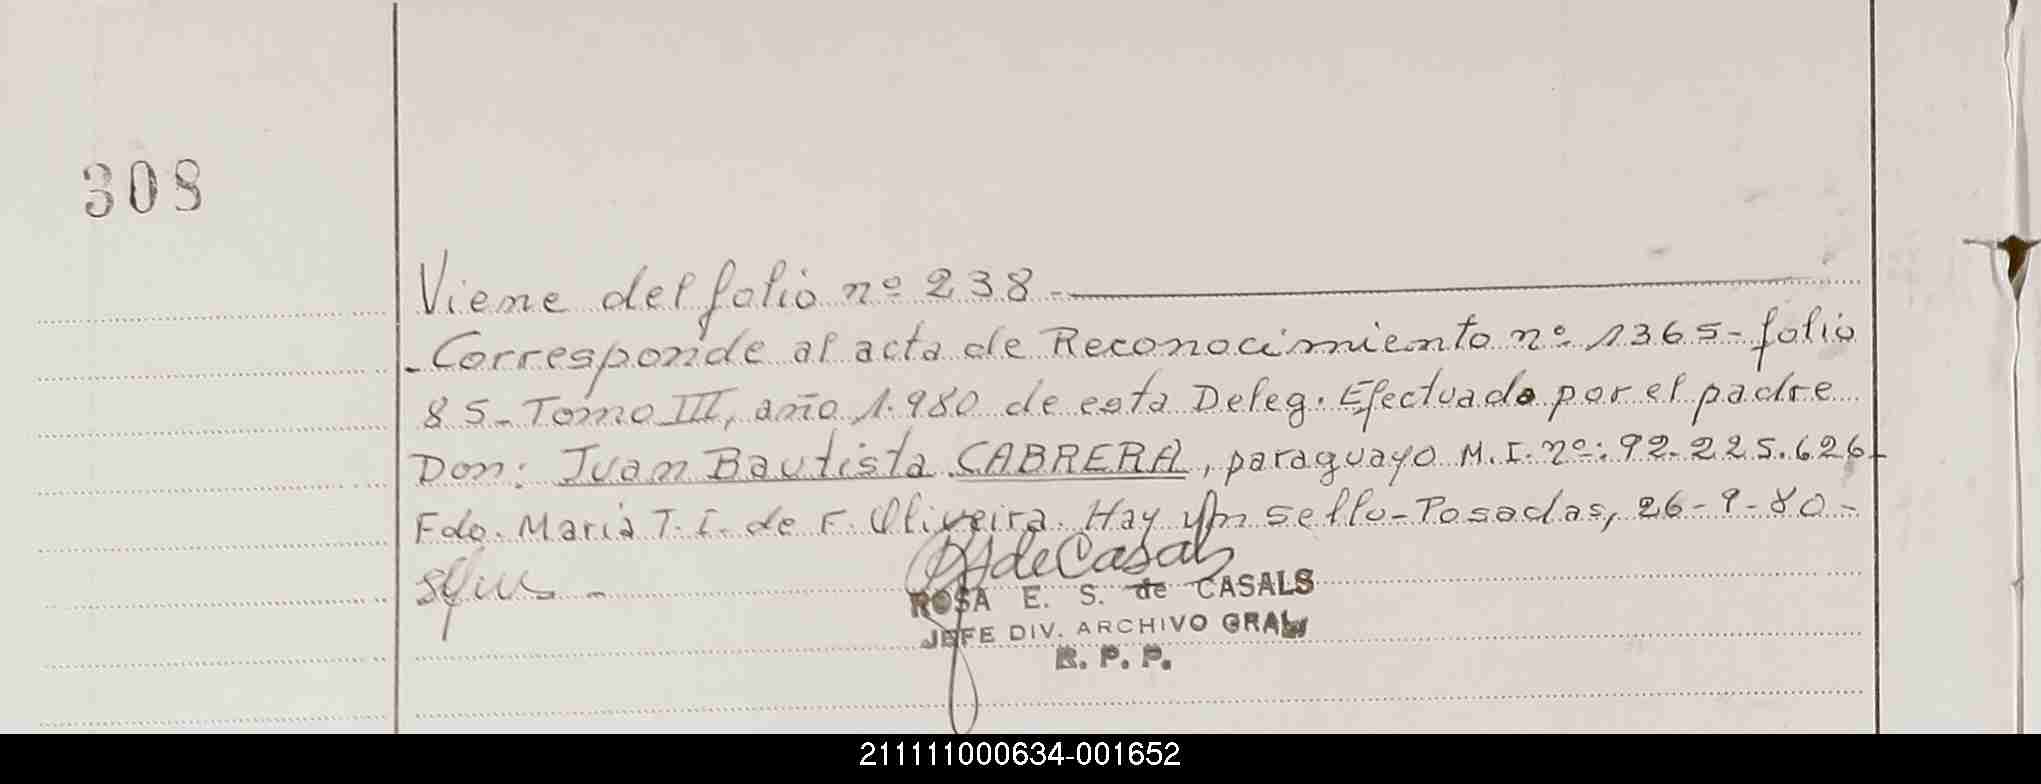 308
Viene del folio nº 238-
-Corresponde al acta de Reconocimiento nº 1365-folio
85-Tomo III, año 1.980 de esta Deleg. Efectuado por el padre
Don: Juan Bautista CABRERA, paraguayo M.I. nº: 92.225.626-
Fdo. Maria T. I. de F. Oliveira. Hay Un sello-Posadas, 26-9-80-
de Casals
ROSA E. S. de CASALS
JEFE DIV. ARCHIVO GRAL
R. P. P.
211111000634-001652